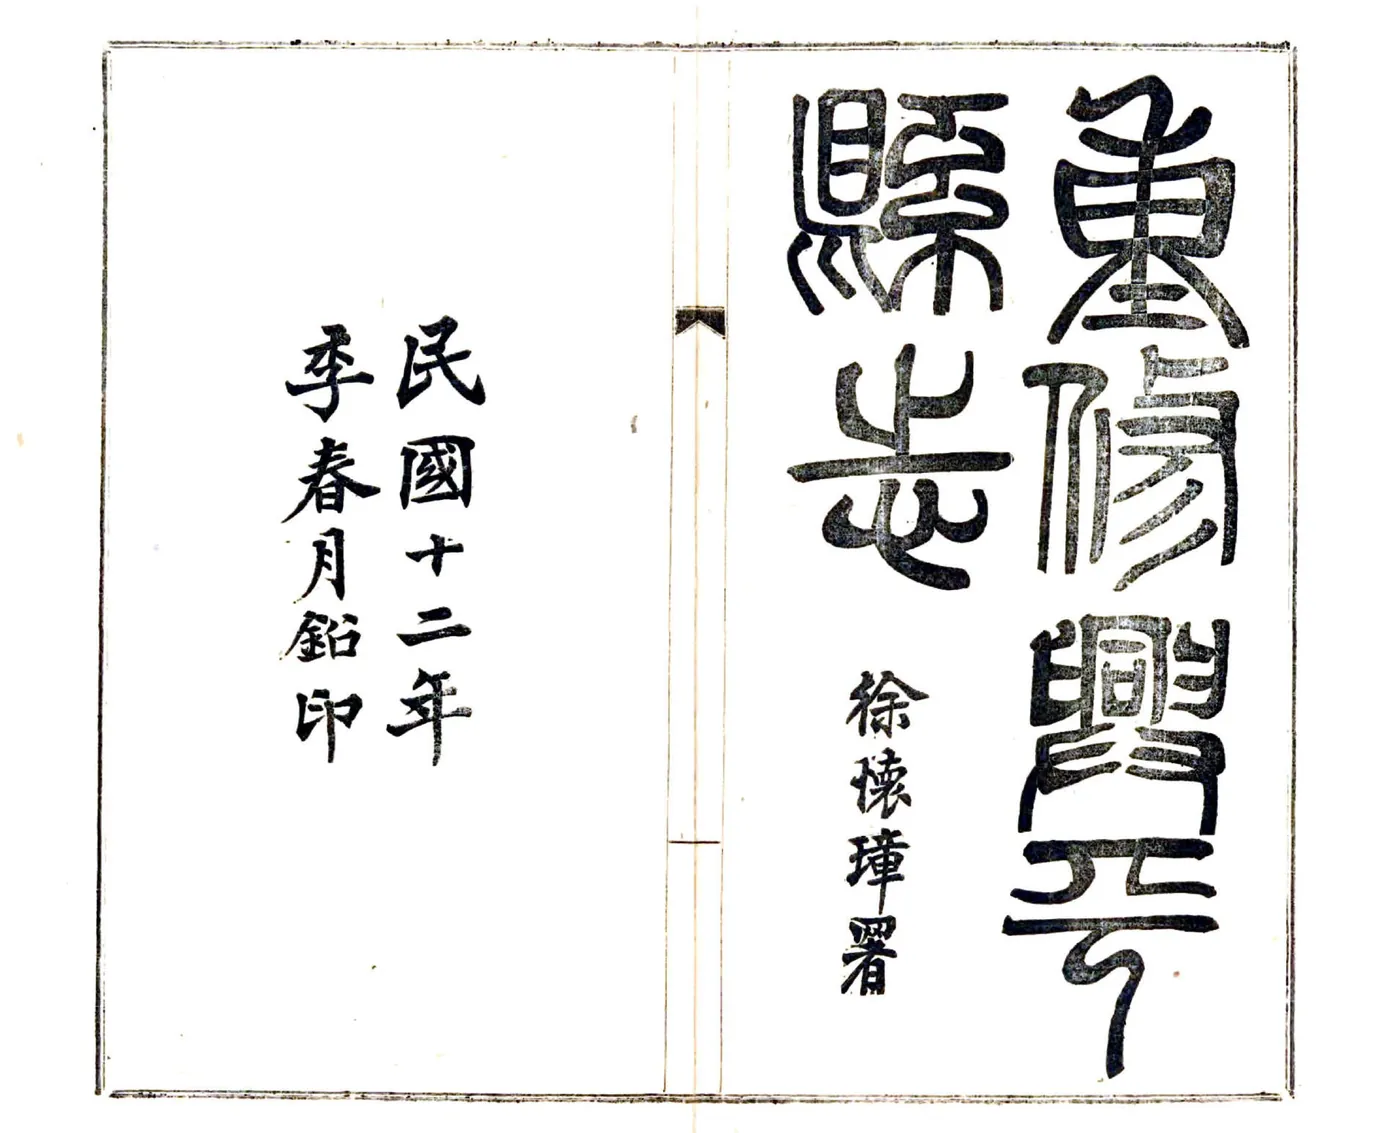 重修興平
縣志
徐懷璋署
民國十二年
季春月鉛印